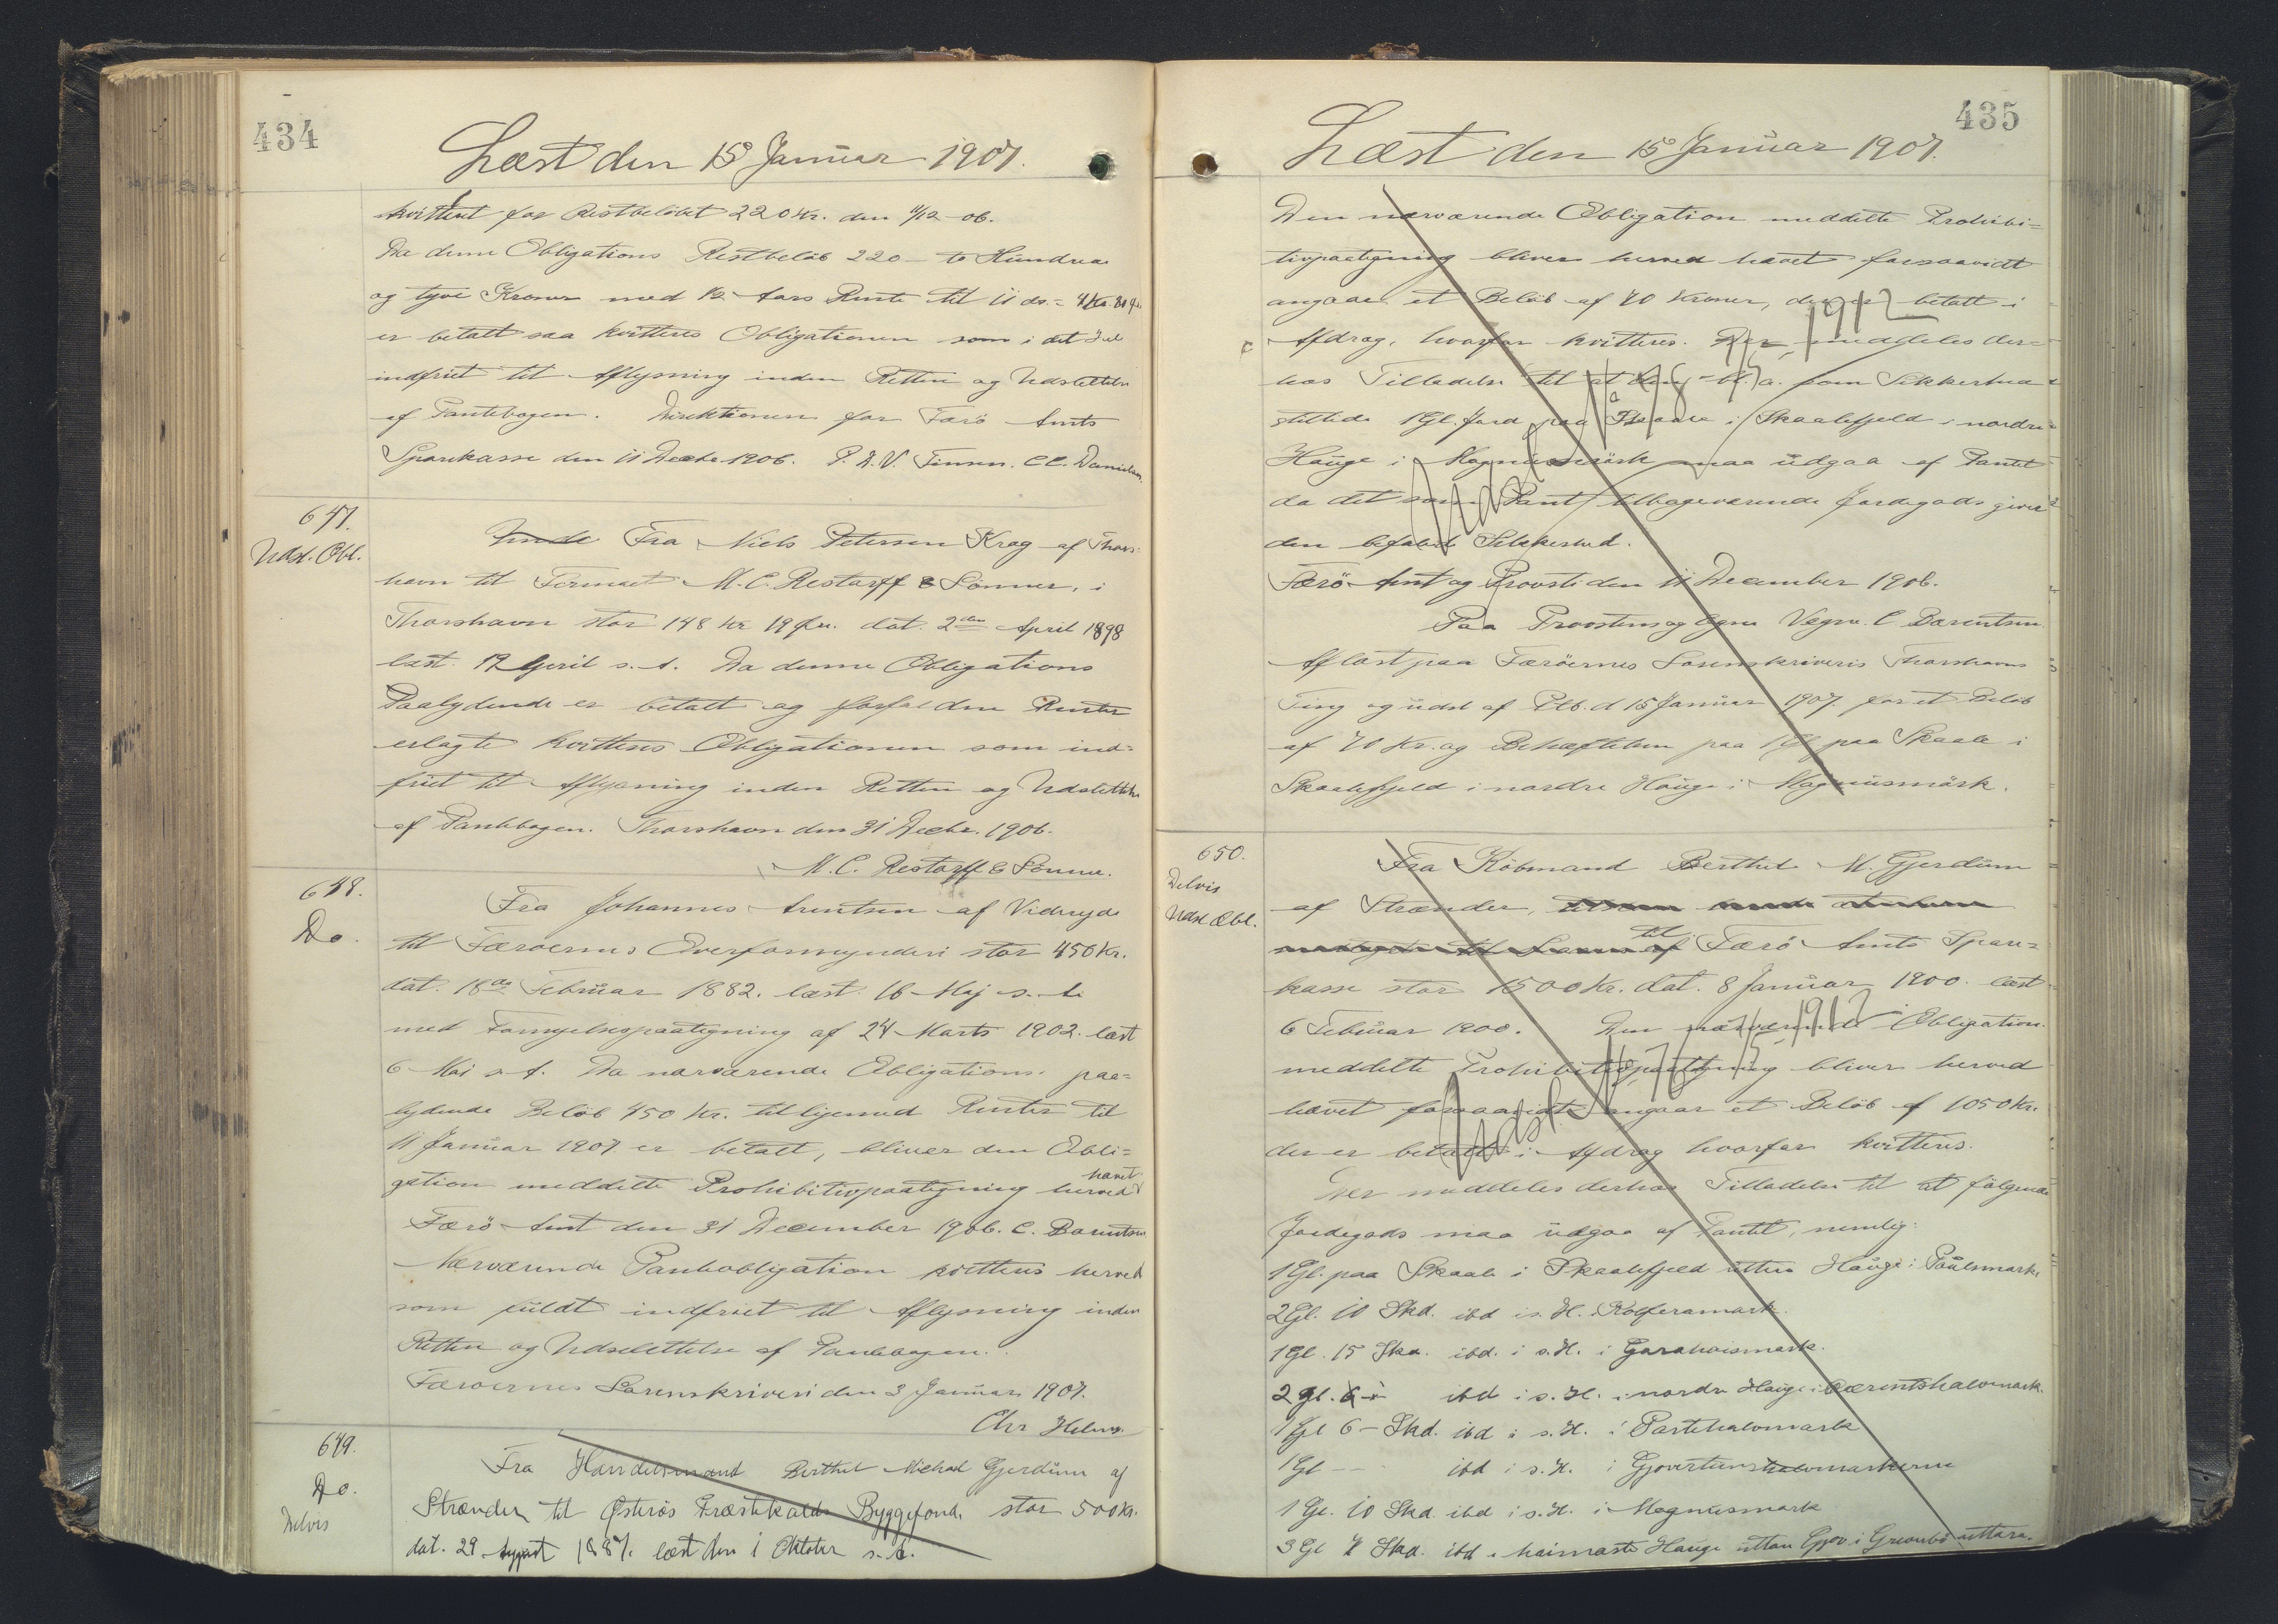 434
Læst den 15 Januar 1907.
kvitteret for Restbeløbet 220 Kr. den 11/12-06.
Da denne Obligations Restbeløb 220 - to Hundrede
og tyve Kroner med 1/2 Aars Rente til 11 ds. = 4 Kr. 80 Ø.
er betalt saa kvitteres Obligationen som i det Hele
indfriet til Aflysning inden Retten og Udslettelse
af Pantebogen. Direktionen for Færø Amts
Sparekasse den 11 Decbr 1906. P. D. V. Finsen. CC. Danielsen.
647.
Udsl. Obl.
Fra Niels Petersen Krag af Thors-
havn til Firmaet M. C. Restorff & Sønner, i
Thorshavn stor 148 Kr 19 Øre. dat. 2den April 1898
læst 19 April s. A. Da denne Obligations
Paalydende er betalt og forfaldne Renter
erlagte kvitteres Obligationen som ind-
friet til Aflysning inden Retten og Udslettelse
af Pantebogen. Thorshavn den 31 Decbr. 1906.
M. C. Restorff & Sønner.
648.
Do.
Fra Johannes Arentsen af Videreyde
til Færøernes Overformynderi stor 450 Kr.
dat. 18de Februar 1882. læst 16 Maj s. A.
med Fornyelsespaategning af 24 Marts 1902. læst
6 Mai s. A. Da nærværende Obligations paa-
lydende Beløb 450 Kr. tilligemed Renter til
11 Januar 1907 er betalt, bliver den Obli-
gation meddelte Prohibitivpaategning herved hævet
Færø Amt den 31 December 1906. C. Bærentsen
Nærværende Panteobligation kvitteres herved
som fuldt indfriet til Aflysning inden
Retten og Udslettelse af Pantebogen.
Færøernes Sorenskriveri den 3 Januar 1907.
Chr Helms.
649.
Do.
Delvis
Fra Handelsmand Berthel Michael Gjerdum af
Strænder til Østerøs Præstekalds Byggefond, stor 500 Kr.
dat. 29 August 1887. læst den 1 Oktober s. A.
435
Læst den 15 Januar 1907.
Den nærværende Obligation meddelte Prohibi-
tivpaategning bliver herved hævet forsaavidt
angaar et Beløb af 70 Kroner, der er betalt i
Afdrag, hvorfor kvitteres. Der meddeles der-
hos Tilladelse til at den bl. a. som Sikkerhed
stillede 1 Gl. Jord paa Skaale i Skaalefjeld i nordre
Hauge i Magnusmørk maa udgaa af Pantet
da det som Pant tilbageværende Jordegods giver
den befalede Sikkerhed.
Færø Amt og Provsti den 11 December 1906.
Paa Provstens og egne Vegne. C. Bærentsen
Aflæst paa Færøernes Sorenskriveris Thorshavns
Ting og udsl af Ptb. d 15 Januar 1907. for et Beløb
af 70 Kr. og Behæftelsen paa 1 Gl. paa Skaale i
Skaalefjeld i nordre Hauge i Magnusmørk.
650.
Delvis
Udsl Obl.
Fra Købmand Berthel M. Gjerdum
af Strænder,
til Færø Amts Spare-
kasse stor 1500 Kr. dat. 8 Januar 1900. læst
6 Februar 1900. Den nærværende Obligation
meddelte Prohibitivpaategning bliver herved
hævet forsaavidt angaar et Beløb af 1050 Kr.
der er betalt i Afdrag hvorfor kvitteres.
Der meddeles derhos Tilladelse til at følgende
Jordegods maa udgaa af Pantet, nemlig:
1 Gl. paa Skaale i Skaalefjeld uttru Hauge i Paulsmark
2 Gl. 10 Skd. ibd i s. H. i Kolferamark.
1 Gl. 15 Skd. ibd. i s. H. i Garahoismark.
2 Gl. ibd i s. H. i nordr Hauge i Bærentshalvmark.
1 Gl 6 - Skd. ibd i s. H. i Partehalvmark
1 Gl - ibd i s. H. i
1 Gl. 10 Skd. ibd i s. H. i Magnusmark
3 Gl Skd. ibd i haimasta Hauge uttan Gjov i
Udsl. 1912
Udsl. 1912